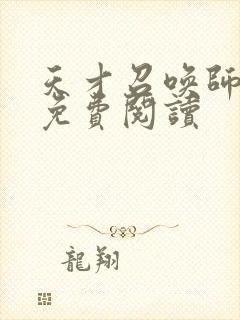 天才召喚師
免費閱讀
龍翔